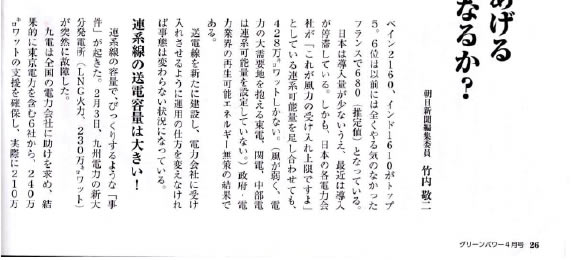 あげる
なるか？
朝日新聞編集委員　竹内 敬二
ペイン2160、インド1610がトップ
5。6位は以前には全くやる気のなかった
フランスで680（推定値）となっている。
日本は導入量が少ないうえ、最近は導入
が停滞している。しかも、日本の各電力会
社が「これが風力の受け入れ上限ですよ」
としている連系可能量を足し合わせても、
428万㌔ワットしかない。（風が弱く、電
力の大需要地を抱える東電、関電、中部電
は連系可能量を設定していない）。政府・電
力業界の再生可能エネルギー無策の結果で
ある。
送電線を新たに建設し、電力会社に受け
入れさせるように運用の仕方を変えなけれ
ば事態は変わらない状況になっている。
連系線の送電容量は大きい！
連系線の容量で、びっくりするような「事
件」が起きた。2月3日、九州電力の新大
分発電所（LNG火力、230万㌔ワット）
が突然に故障した。
九電は全国の電力会社に助けを求め、結
果的に東京電力を含む6社から、240万
㌔ワットの支援を確保し、実際に210万
グリーンパワー4月号 26